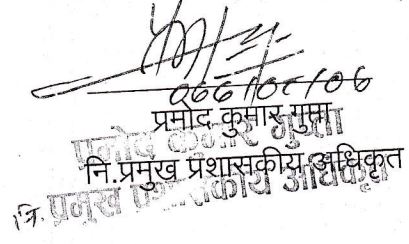 ०६६/०८/०६
प्रमोद कुमार गुप्ता
नि.प्रमुख प्रशासकीय अधिकृत
प्रमोद कुमार गुप्ता
नि. प्रमुख प्रशासकीय अधिकृत